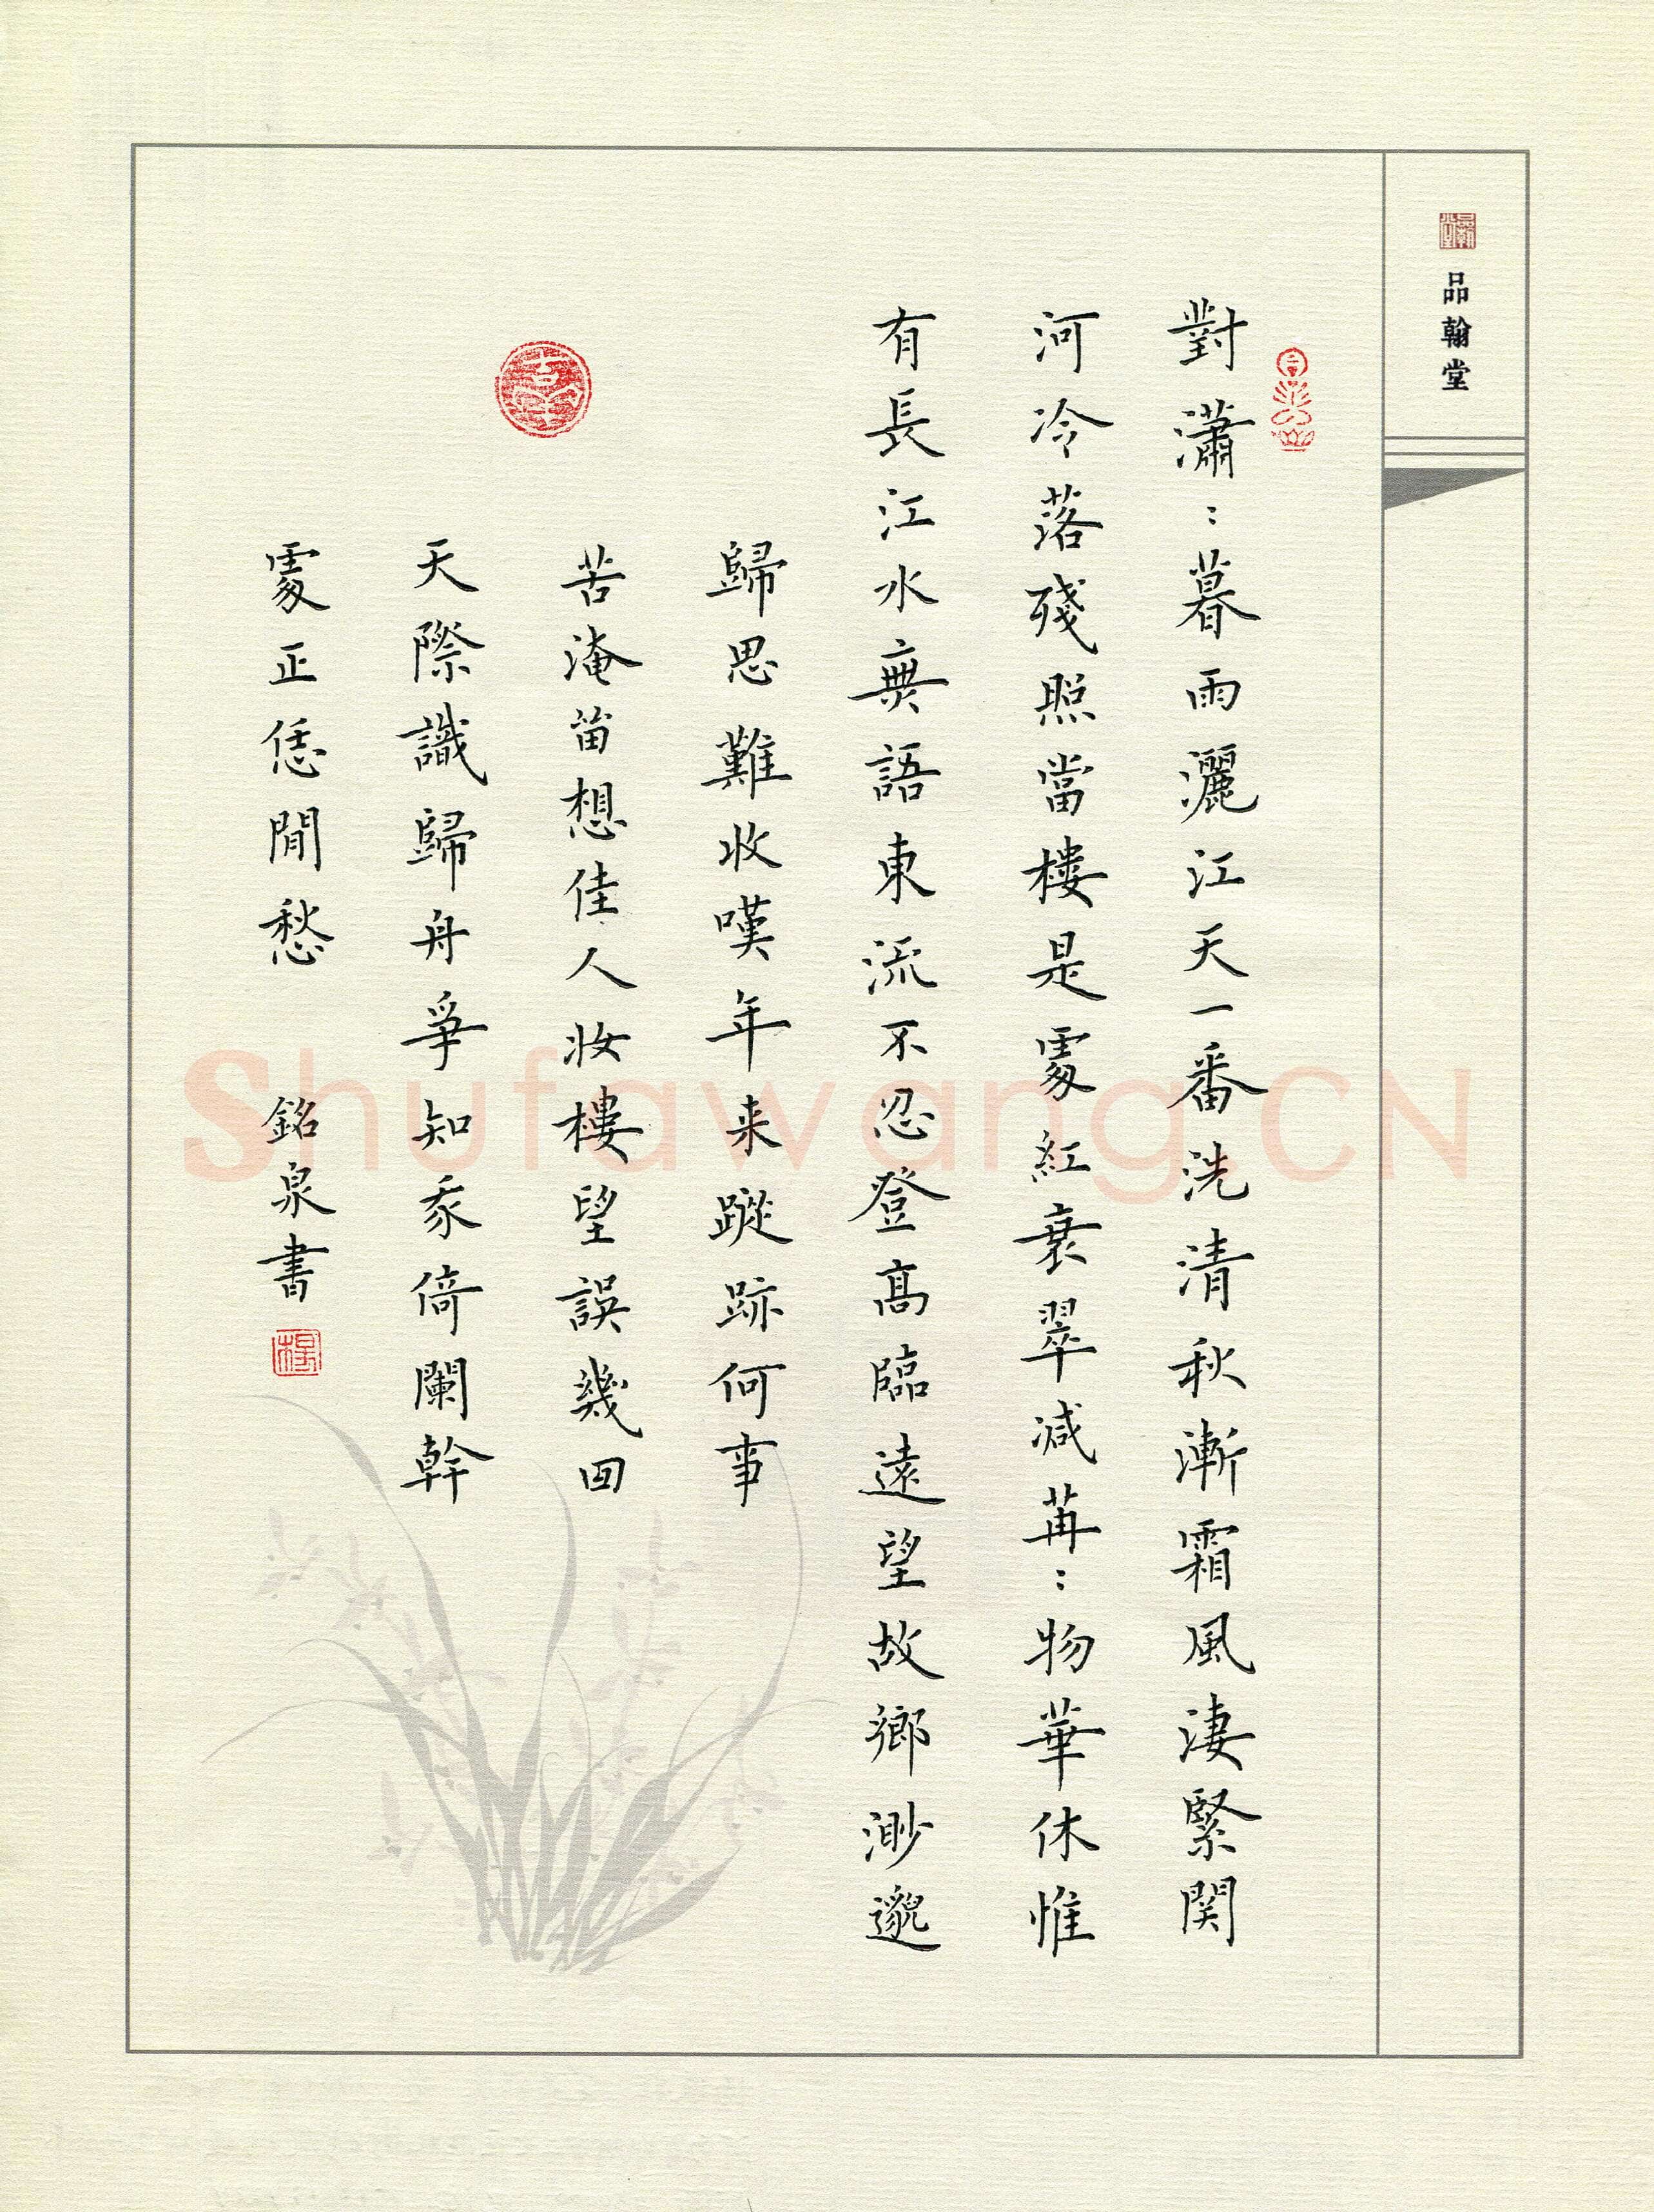 品翰堂
對瀟:暮雨灑江天一番洗清秋漸霜風淒緊関
河冷落殘照當樓是處紅衰翠減苒:物華休惟
有長江水無語東流不忍登高臨遠望故鄉渺邈
歸思難收嘆年来蹤跡何事
苦淹笛想佳人妝樓望誤幾回
天際識歸舟爭知我倚闌幹
處正恁閒愁 銘泉書
Shufawang.CN